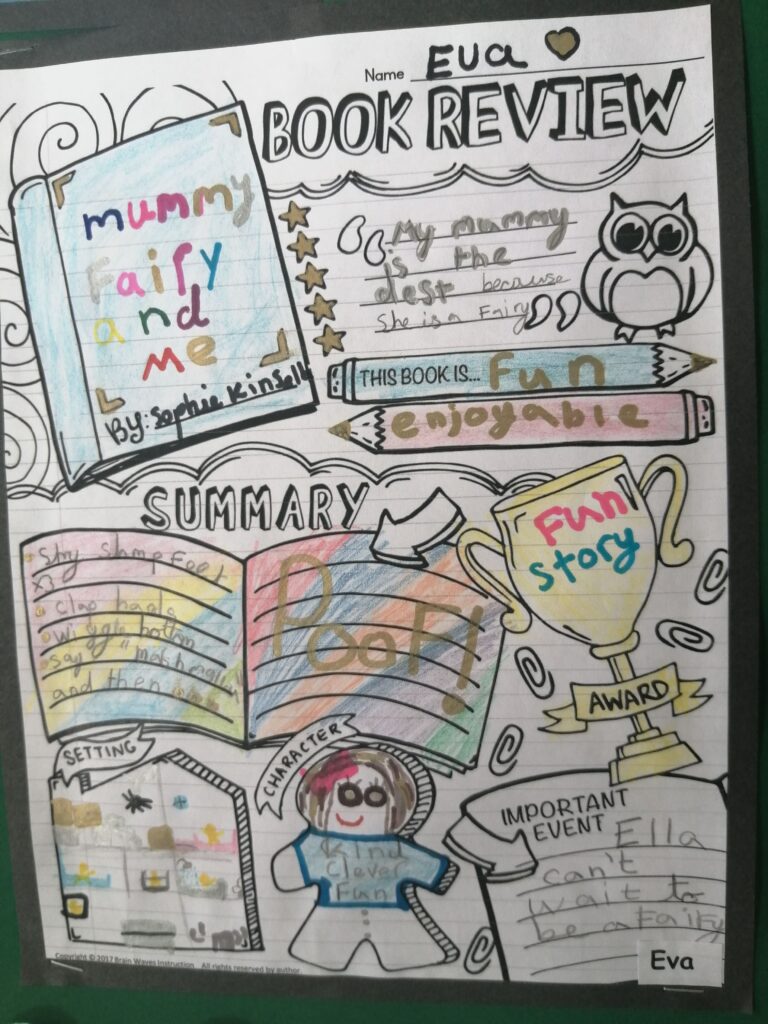 Name Eva
BOOK REVIEW
mummy
Fairy
and
me
By: Sophie Kinsella
My mummy
is the
dest because
She is a Fairy
THIS BOOK IS... Fun
enjoyable
SUMMARY
Stamp Feet
x3
Clap hads
Wiggle bottom
say "
and then
Poof!
Fun
story
AWARD
SETTING
CHARACTER
Kind
Clever
Fun
IMPORTANT
EVENT
Ella
can't
wait to
be a Fairy
Eva
Copyright © 2017 Brain Waves Instruction All rights reserved by author.